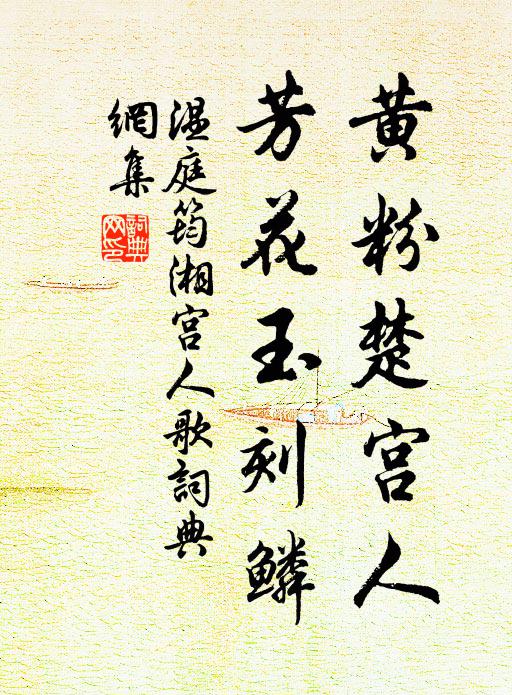 黄粉楚宫人
芳花玉刻鱗
温庭筠湘宫人歌詞典
網集
詞典
网印